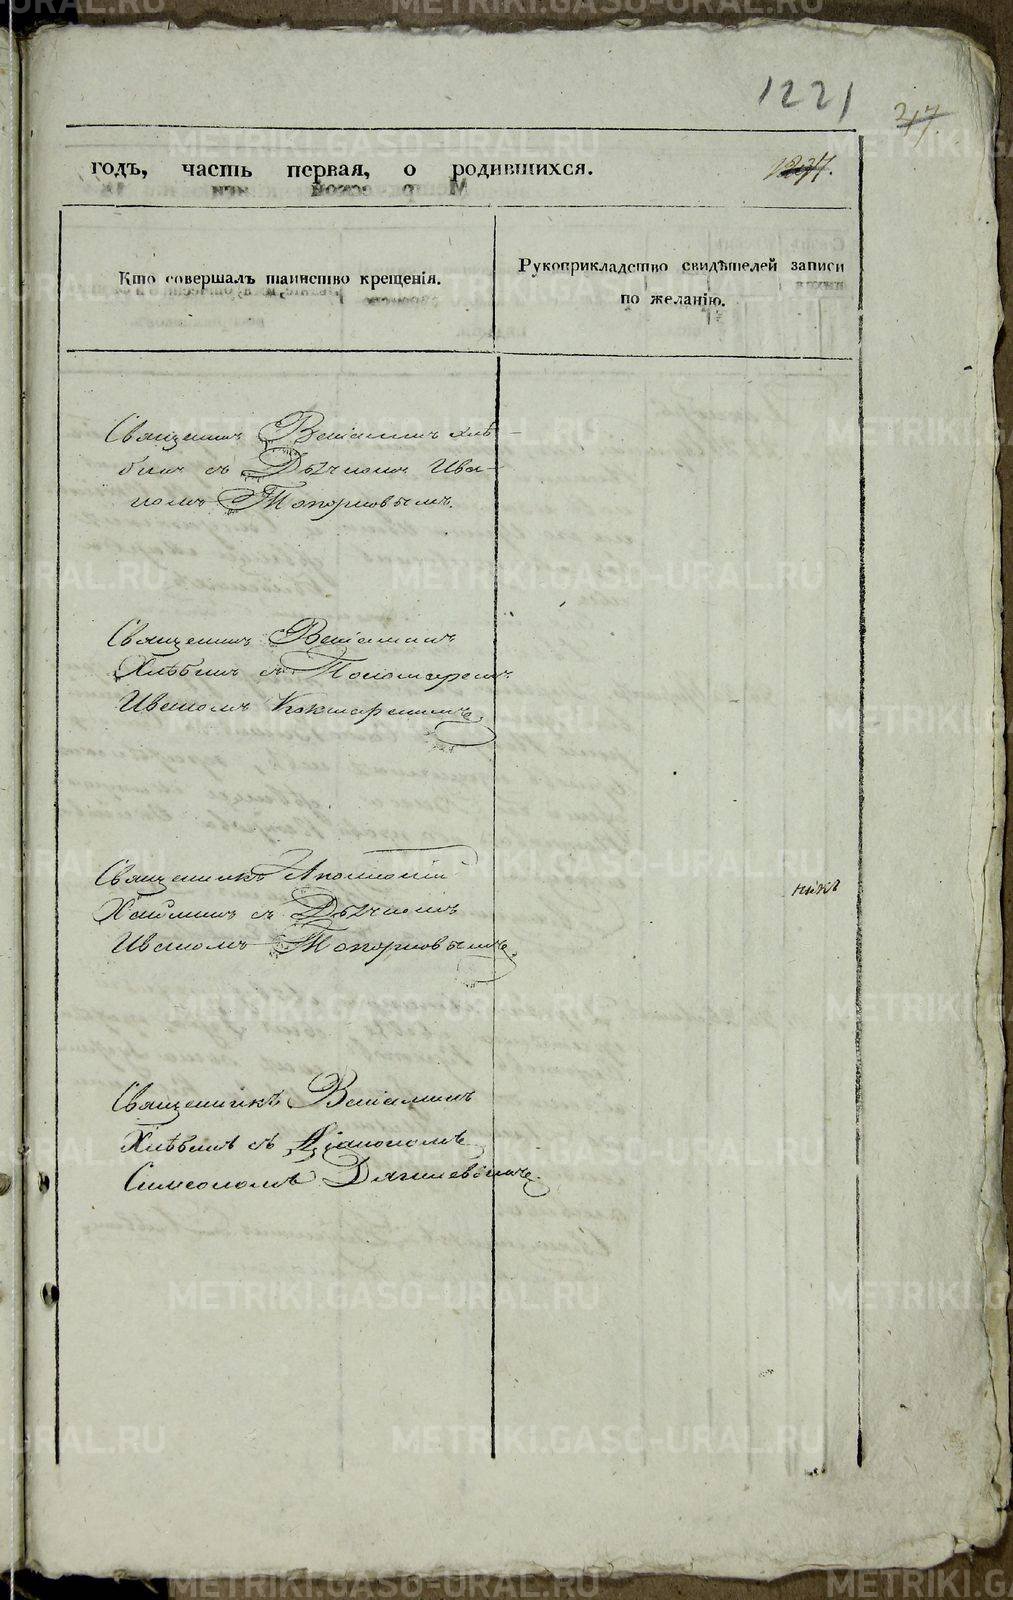 1221
47.
годъ, часть первая, о родившихся.
1237.
Кто совершалъ таинство крещенія.
Рукоприкладство свидѣтелей записи
по желанію.
Священникъ Веніаминъ Хлѣ-
бинъ съ Дьячкомъ Ива-
номъ Топорковымъ.
Священникъ Веніаминъ
Хлѣбинъ съ Пономаремъ
Иваномъ Кокшаринымъ
Священникъ
съ Дьячкомъ
Иваномъ Топорковымъ.
никъ
Священникъ Веніаминъ
Хлѣбинъ съ Діакономъ
Симеономъ Дягилевымъ.
METRIKI.GASO-URAL.RU